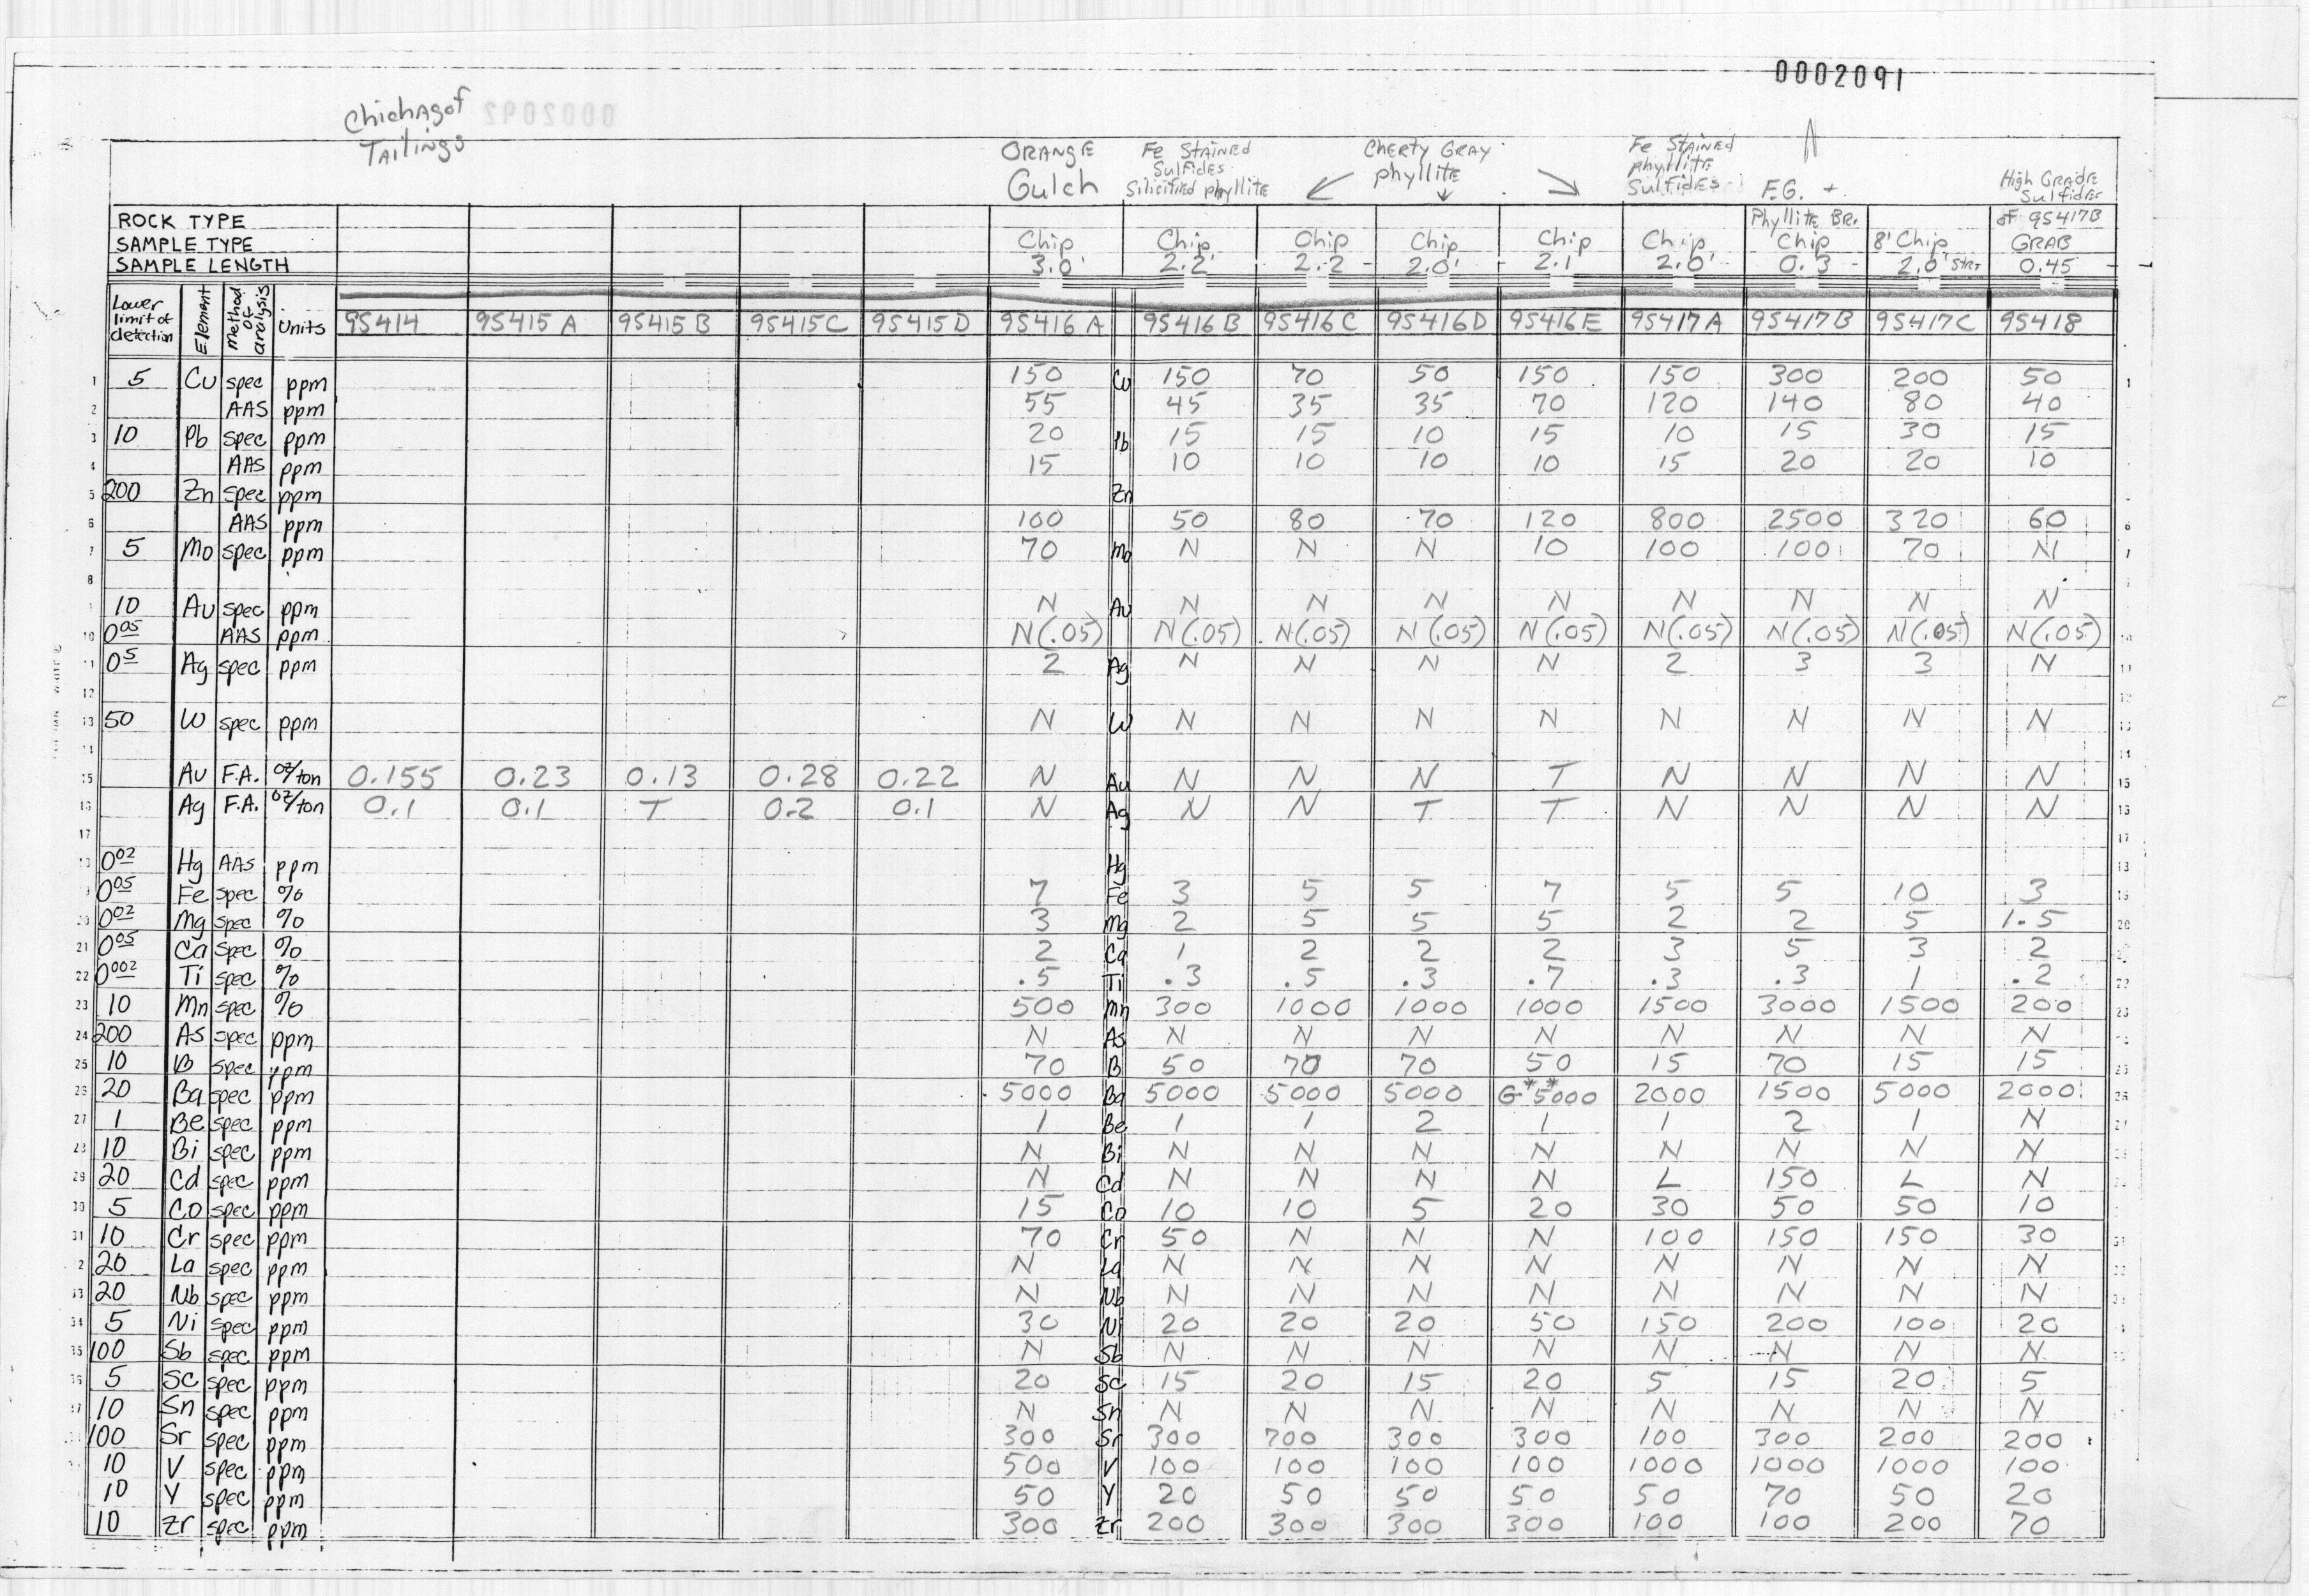 0002091
Chichagof
Tailings
0002092
ORANGE Gulch
Fe STAINED Sulfides Silicified phyllite
CHERTY GRAY phyllite
Fe STAINED phyllite SulfidEs
F.G. +
High Gradre Sulfides
ROCK TYPE Phyllite BR. of 9S417B
SAMPLE TYPE Chip Chip Chip Chip Chip Chip Chip 8' Chip GRAB
SAMPLE LENGTH 3.0' 2.2' 2.2 2.0' 2.1 2.0' 0.3 2.0' 0.45
Lower limit of detection Element method of analysis Units 9S414 9S415 A 9S415 B 9S415C 9S415 D 9S416 A 9S416 B 9S416 C 9S416D 9S416E 9S417A 9S417B 9S417C 9S418
1 5 Cu spec ppm 150 Cu 150 70 50 150 150 300 200 50 1
2 AAS ppm 55 45 35 35 70 120 140 80 40
3 10 Pb spec ppm 20 Pb 15 15 10 15 10 15 30 15
4 AAS ppm 15 10 10 10 10 15 20 20 10
5 200 Zn spec ppm Zn
6 AAS ppm 100 50 80 70 120 800 2500 320 60 6
7 5 Mo spec ppm 70 Mo N N N 10 100 100 70 N 7
8
10 Au spec ppm N Au N N N N N N N N
10 0.05 AAS ppm N(.05) N(.05) N(.05) N(.05) N(.05) N(.05) N(.05) N(.05) N(.05) 10
11 0.5 Ag spec ppm 2 Ag N N N N 2 3 3 N 11
12 12
13 50 W spec ppm N W N N N N N N N N 13
14 14
15 Au F.A. oz/ton 0.155 0.23 0.13 0.28 0.22 N Au N N N T N N N N 15
16 Ag F.A. oz/ton 0.1 0.1 T 0.2 0.1 N Ag N N T T N N N N 16
17 17
18 0.02 Hg AAS ppm Hg 18
19 0.05 Fe spec % 7 Fe 3 5 5 7 5 5 10 3 19
20 0.02 Mg spec % 3 Mg 2 5 5 5 2 2 5 1.5 20
21 0.05 Ca spec % 2 Ca 1 2 2 2 3 5 3 2
22 0.002 Ti spec % .5 Ti .3 .5 .3 .7 .3 .3 1 .2 22
23 10 Mn spec % 500 Mn 300 1000 1000 1000 1500 3000 1500 200 23
24 200 As spec ppm N As N N N N N N N N
25 10 B spec ppm 70 B 50 70 70 50 15 70 15 15 25
26 20 Ba spec ppm 5000 Ba 5000 5000 5000 G**5000 2000 1500 5000 2000 26
27 1 Be spec ppm 1 Be 1 1 2 1 1 2 1 N 27
28 10 Bi spec ppm N Bi N N N N N N N N
29 20 Cd spec ppm N Cd N N N N L 150 L N
30 5 Co spec ppm 15 Co 10 10 5 20 30 50 50 10
31 10 Cr spec ppm 70 Cr 50 N N N 100 150 150 30 31
20 La spec ppm N La N N N N N N N N
33 20 Nb spec ppm N Nb N N N N N N N N
34 5 Ni spec ppm 30 Ni 20 20 20 50 150 200 100 20
35 100 Sb spec ppm N Sb N N N N N N N N
5 Sc spec ppm 20 Sc 15 20 15 20 5 15 20 5
10 Sn spec ppm N Sn N N N N N N N N
100 Sr spec ppm 300 Sr 300 700 300 300 100 300 200 200
10 V spec ppm 500 V 100 100 100 100 1000 1000 1000 100
10 Y spec ppm 50 Y 20 50 50 50 50 70 50 20
10 Zr spec ppm 300 Zr 200 300 300 300 100 100 200 70